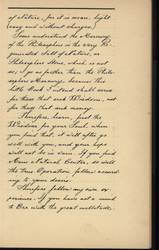 of Nature, for it is mean, light
(easy and without charges).
Thus understand the Mercury
of the Philosophers is the very Re-
Incruded Salt of Nature, or
Philosophers Stone, which is not
so; I go no further than the Philo-
sophers Mercury, because this
little Book I intend shall serve
for those that seek Wisdom, not
for those that seek money.
Therefore, learn, first the
Wisdom for your Soul; when
you find that, it will after go
well with you, and your hopes
will not be in vain. If you find
Nature Natural Center, so will
the true Operation follow accord-
ing to your desire.
Therefore follow my own ex-
perience; if you have not a mind
to Err with the great multitude,